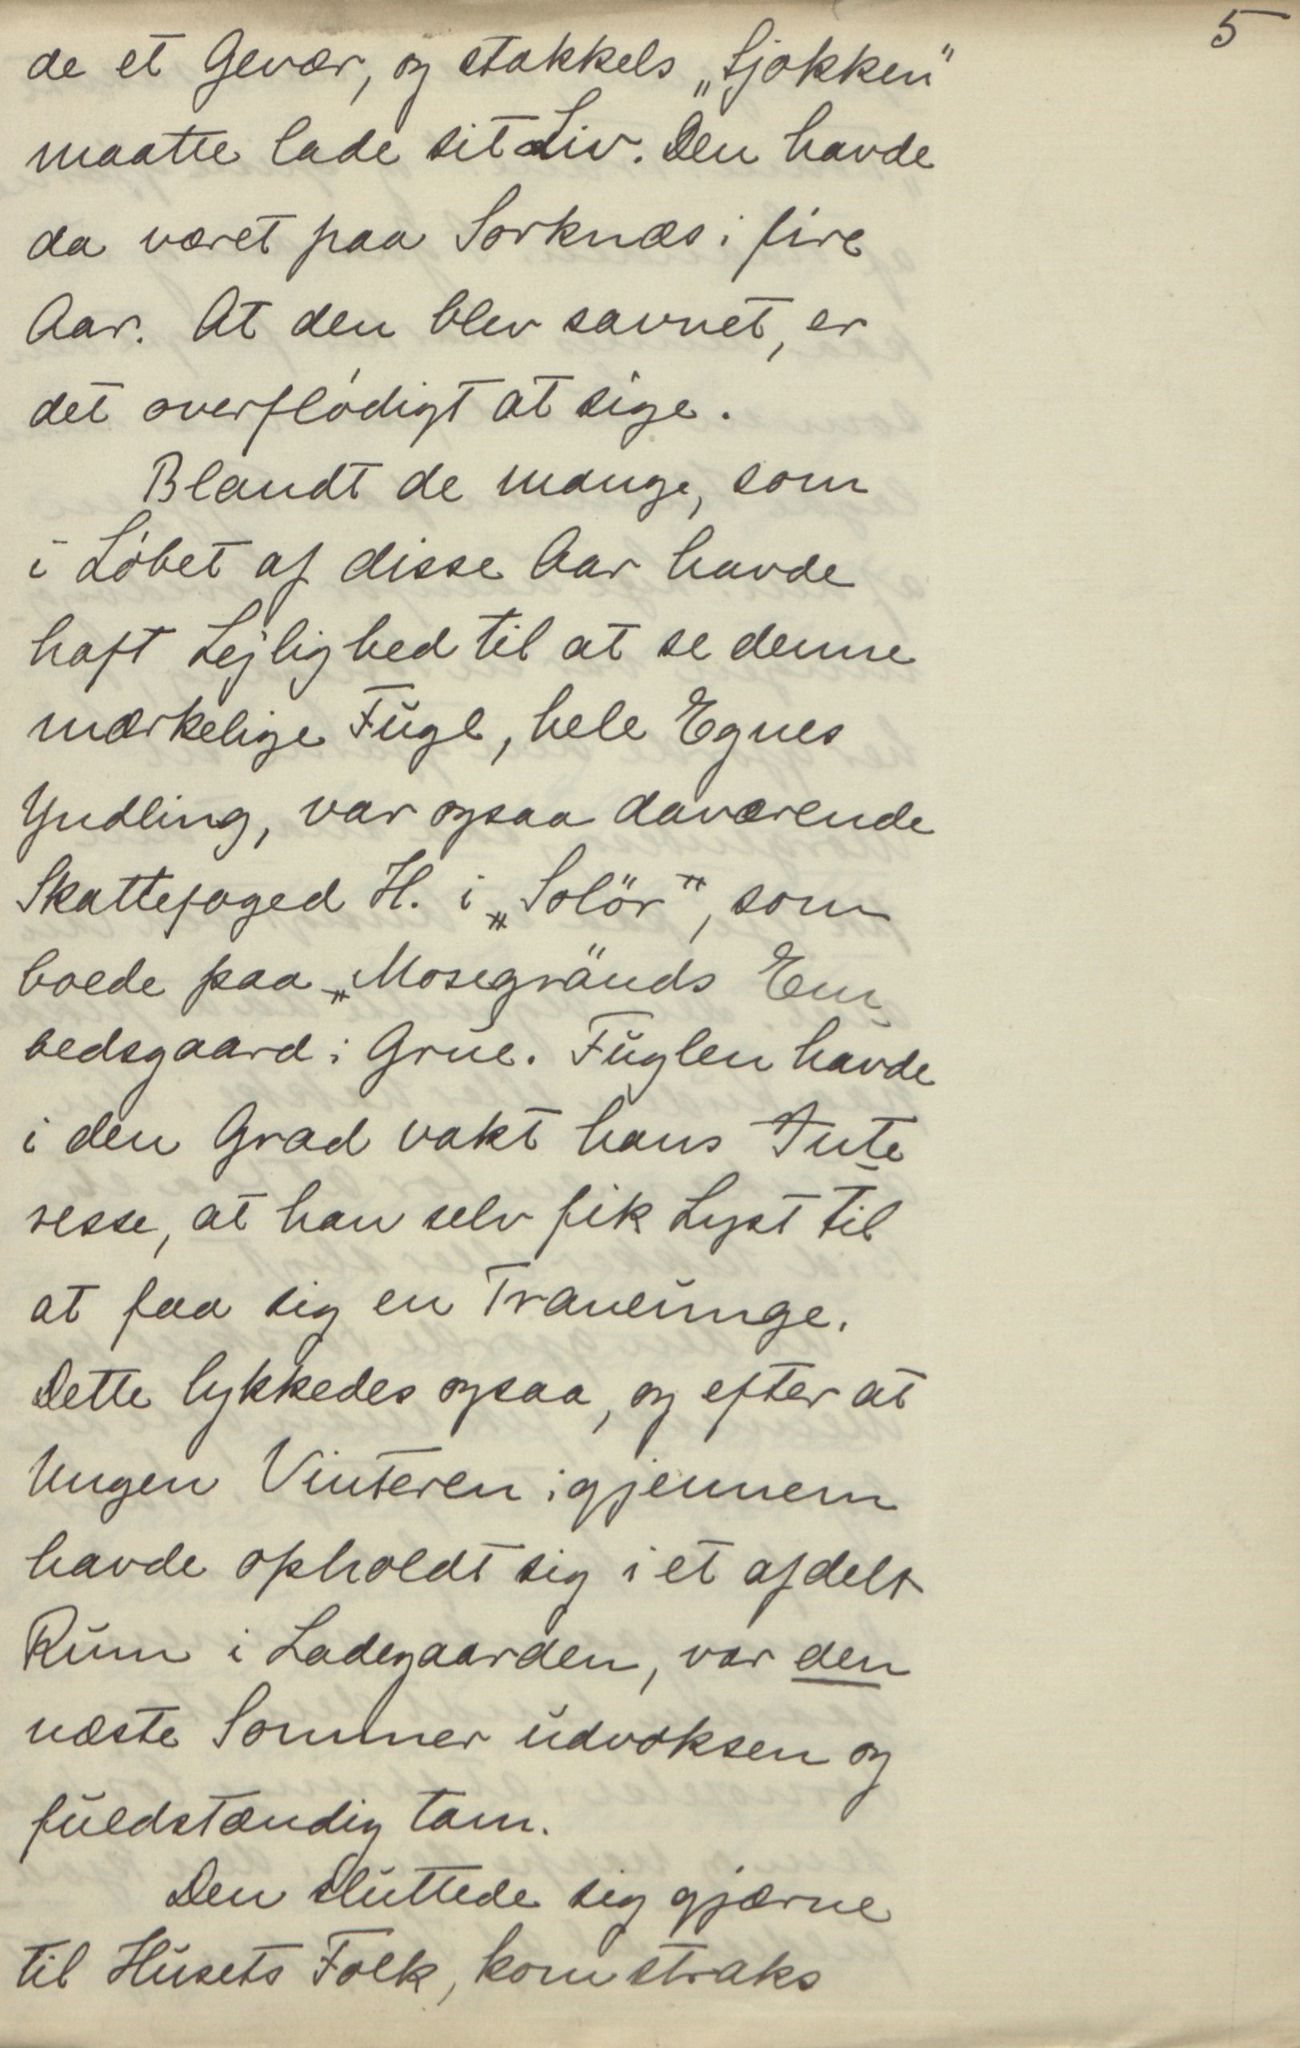 5
de et Gevær, og stakkels „Sjokken"
maatte lade sit Liv. Den havde
da været paa Sorknæs i fire
Aar. At den blev savnet, er
det overflödigt at sige.
Blandt de mange, som
i Löbet af disse Aar havde
haft Lejlighed til at se denne
mærkelige Fugl, hele Egnes
Yndling, var ogsaa daværende
Skattefoged H. i „Solör", som
boede paa „Mosegränds Em-
bedsgaard i Grue. Fuglen havde
i den Grad vakt hans Inte-
resse, at han selv fik Lyst til
at faa sig en Traneunge.
Dette lykkedes ogsaa, og efter at
Ungen Vinteren igjennem
havde opholdt sig i et afdelt
Rum i Ladegaarden, var den
næste Sommer udvoksen og
fuldstændig tam.
Den sluttede sig gjærne
til Husets Folk, kom straks